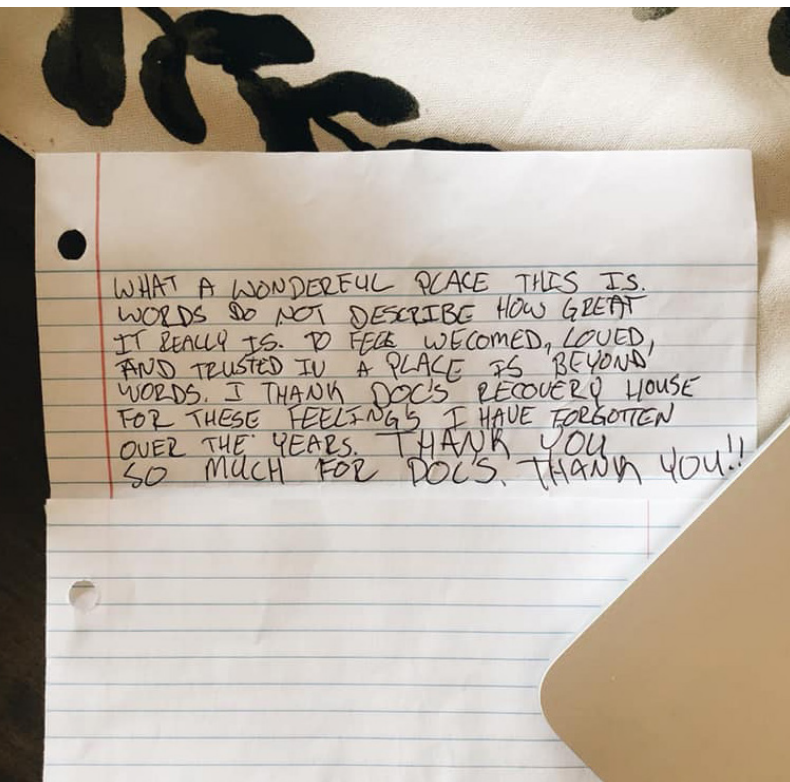 WHAT A WONDERFUL PLACE THIS IS.
WORDS DO NOT DESCRIBE HOW GREAT
IT REALLY IS. TO FEEL WECOMED, LOVED,
AND TRUSTED IN A PLACE IS BEYOND
WORDS. I THANK DOC'S RECOVERY HOUSE
FOR THESE FEELINGS I HAVE FORGOTTEN
OVER THE YEARS. THANK YOU
SO MUCH FOR DOCS. THANK YOU!!